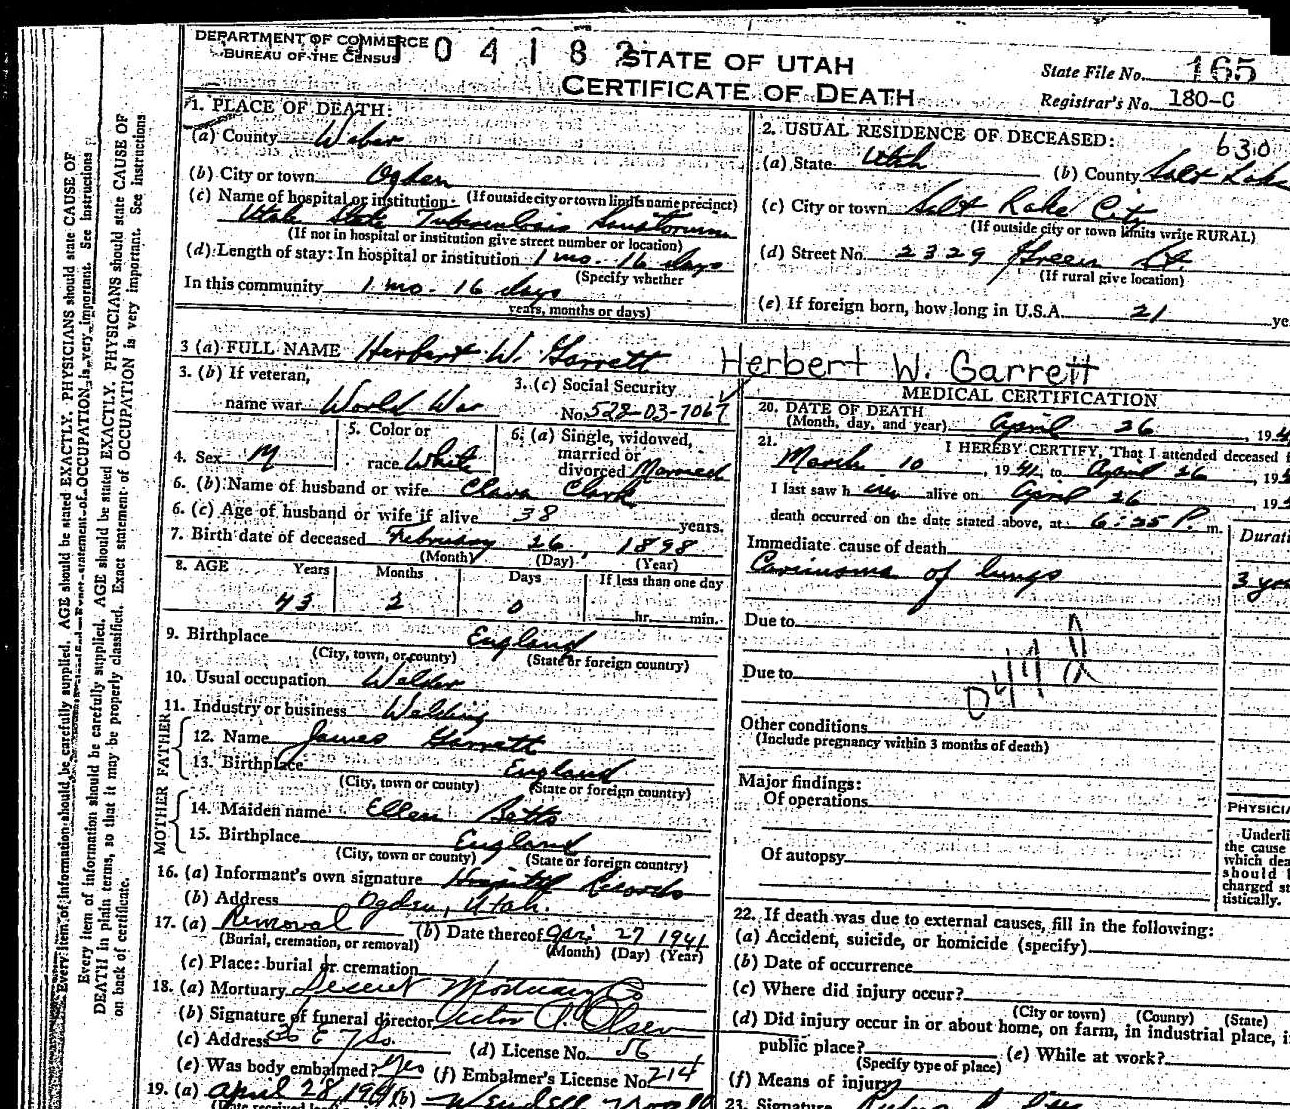 DEPARTMENT OF COMMERCE
BUREAU OF THE CENSUS
0 4 1 8 2
STATE OF UTAH
CERTIFICATE OF DEATH
State File No. 165
Registrar's No. 180-C
1. PLACE OF DEATH:
(a) County Weber
(b) City or town Ogden
(If outside city or town limits name precinct)
(c) Name of hospital or institution:
Utah State Tuberculosis Sanatorium
(If not in hospital or institution give street number or location)
(d) Length of stay: In hospital or institution 1 mo. 16 days
(Specify whether
In this community 1 mo. 16 days
years, months or days)
2. USUAL RESIDENCE OF DECEASED:
630
(a) State Utah (b) County Salt Lake
(c) City or town Salt Lake City
(If outside city or town limits write RURAL)
(d) Street No. 2329 Green St.
(If rural give location)
(e) If foreign born, how long in U.S.A. 21 ye
3 (a) FULL NAME Herbert W. Garrett
Herbert W. Garrett
3. (b) If veteran,
name war World War
3. (c) Social Security
No. 528-03-7067
4. Sex M
5. Color or
race White
6. (a) Single, widowed,
married or
divorced Married
6. (b) Name of husband or wife Clara Clark
6. (c) Age of husband or wife if alive 38 years.
7. Birth date of deceased February 26, 1898
(Month) (Day) (Year)
8. AGE Years Months Days If less than one day
43 2 0 hr. min.
9. Birthplace England
(City, town, or county) (State or foreign country)
10. Usual occupation Welder
11. Industry or business Welding
FATHER
12. Name James Garrett
13. Birthplace England
(City, town or county) (State or foreign country)
MOTHER
14. Maiden name Ellen Betts
15. Birthplace England
(City, town or county) (State or foreign country)
16. (a) Informant's own signature Hospital Records
(b) Address Ogden, Utah.
17. (a) Removal (b) Date thereof Apr. 27 1941
(Burial, cremation, or removal) (Month) (Day) (Year)
(c) Place: burial or cremation
18. (a) Mortuary Deseret Mortuary Co
(b) Signature of funeral director Victor P. Olsen
(c) Address 36 E 7 So. (d) License No. 56
(e) Was body embalmed? Yes (f) Embalmer's License No. 214
19. (a) April 28, 1941 (b) Wendell
MEDICAL CERTIFICATION
20. DATE OF DEATH
(Month, day, and year) April 26, 194
21. I HEREBY CERTIFY, That I attended deceased f
March 10, 1941, to April 26, 19
I last saw him alive on April 26 19
death occurred on the date stated above, at 6:25 P. m.
Immediate cause of death
Durati
Carcinoma of lungs
3 yea
Due to
Due to
Other conditions
(Include pregnancy within 3 months of death)
Major findings:
Of operations
Of autopsy
PHYSICIA
Underli
the cause
which dea
should b
charged st
tistically.
22. If death was due to external causes, fill in the following:
(a) Accident, suicide, or homicide (specify)
(b) Date of occurrence
(c) Where did injury occur?
(City or town) (County) (State)
(d) Did injury occur in or about home, on farm, in industrial place, i
public place? (e) While at work?
(Specify type of place)
(f) Means of injury
23. Signature
Every item of information should be carefully supplied. AGE should be stated EXACTLY. PHYSICIANS should state CAUSE OF
DEATH in plain terms, so that it may be properly classified. Exact statement of OCCUPATION is very important. See instructions
on back of certificate.